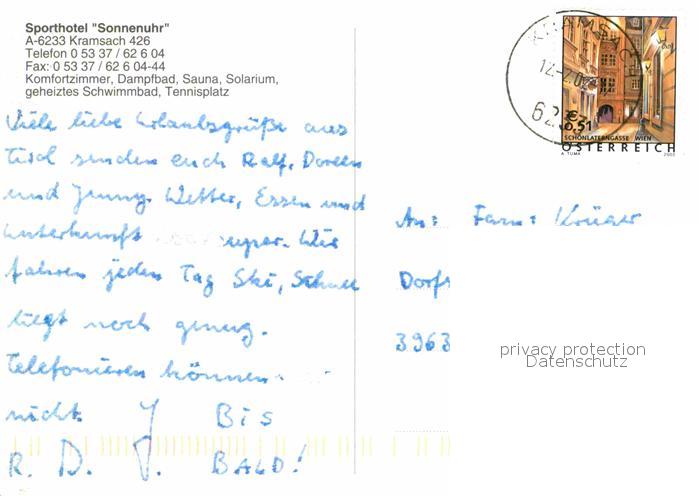 Sporthotel "Sonnenuhr"
A-6233 Kramsach 426
Telefon 0 53 37 / 62 6 04
Fax: 0 53 37 / 62 6 04-44
Komfortzimmer, Dampfbad, Sauna, Solarium,
geheiztes Schwimmbad, Tennisplatz
Viele liebe Urlaubsgrüße aus
Tirol senden euch Ralf, Doreen
und Jenny. Wetter, Essen und
Unterkunft super. Wir
fahren jeden Tag Ski, Schnee
liegt noch genug.
Telefonieren können
nicht. Bis
R. D. J. BALD!
KRAMSACH
62
€ 0,51
SCHÖNLATERNGASSE WIEN
ÖSTERREICH
A. TUMA 2002
An: Fam: Krüger
Dorfs
3963
privacy protection
Datenschutz